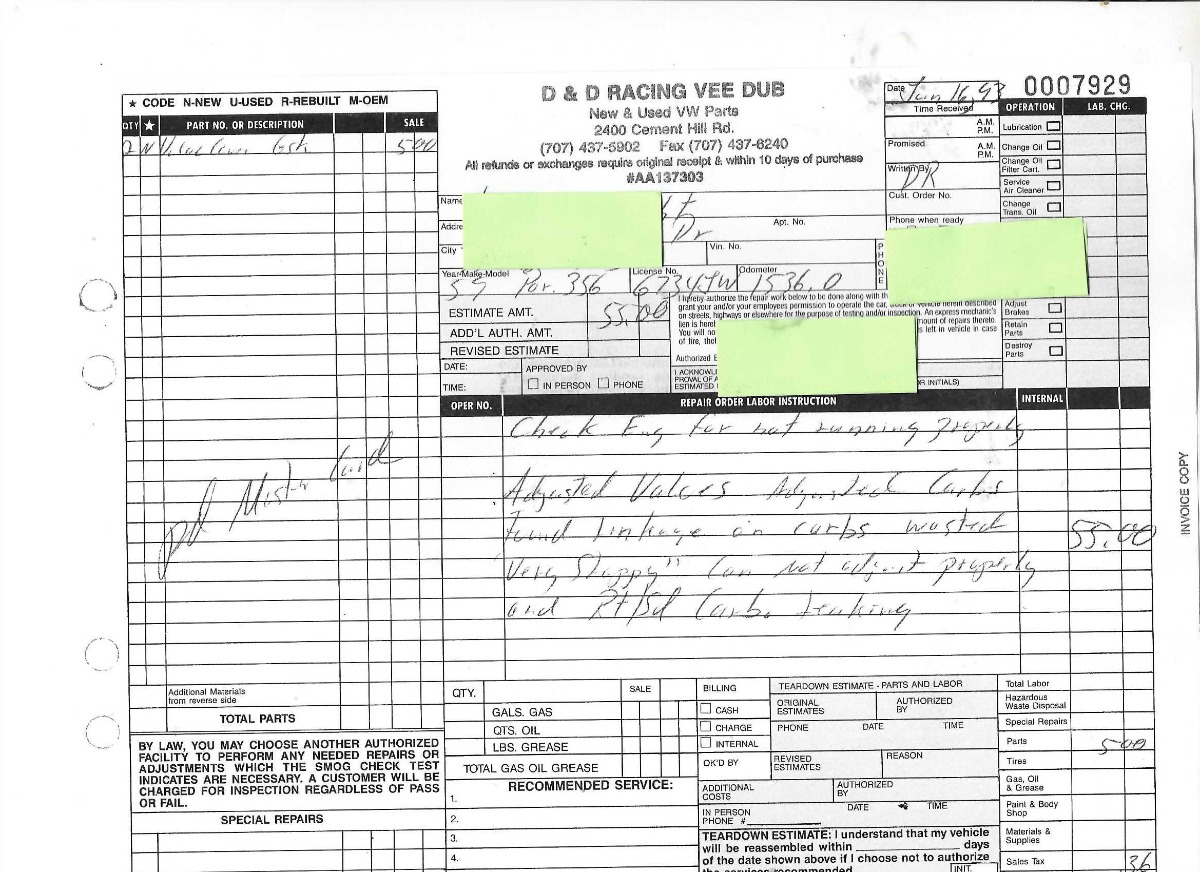 ★ CODE N-NEW U-USED R-REBUILT M-OEM
QTY ★ PART NO. OR DESCRIPTION SALE
2 N Valve Cover Gsk 5 00
pd Master Card
Additional Materials
from reverse side
TOTAL PARTS
BY LAW, YOU MAY CHOOSE ANOTHER AUTHORIZED
FACILITY TO PERFORM ANY NEEDED REPAIRS OR
ADJUSTMENTS WHICH THE SMOG CHECK TEST
INDICATES ARE NECESSARY. A CUSTOMER WILL BE
CHARGED FOR INSPECTION REGARDLESS OF PASS
OR FAIL.
SPECIAL REPAIRS
D & D RACING VEE DUB
New & Used VW Parts
2400 Cement Hill Rd.
(707) 437-5902 Fax (707) 437-6240
All refunds or exchanges require original receipt & within 10 days of purchase
#AA137303
Name
Addre
Dr
Apt. No.
City
Vin. No.
Year-Make-Model License No. Odometer
57 Por. 356 6734JW 1536.0
ESTIMATE AMT. 55.00
ADD'L AUTH. AMT.
REVISED ESTIMATE
DATE: APPROVED BY
TIME: IN PERSON PHONE
I hereby authorize the repair work below to be done along with th
grant your and/or your employees permission to operate the car, vehicle herein described
on streets, highways or elsewhere for the purpose of testing and/or inspection. An express mechanic's
lien is here amount of repairs thereto.
You will no s left in vehicle in case
of fire, thef
Authorized
I ACKNOWLE
PROVAL OF A
ESTIMATED OR INITIALS)
Date Jan 16, 93
0007929
Time Received
A.M.
P.M.
Promised A.M.
P.M.
Written By DR
Cust. Order No.
Phone when ready
PHONE
OPERATION LAB. CHG.
Lubrication
Change Oil
Change Oil
Filter Cart.
Service
Air Cleaner
Change
Trans. Oil
Adjust
Brakes
Retain
Parts
Destroy
Parts
OPER NO. REPAIR ORDER LABOR INSTRUCTION INTERNAL
Check Eng for not running properly
Adjusted Valves Adjusted Carbs
found linkage on carbs wasted 55.00
"Very Sloppy" Can not adjust properly
and Rt/Sd Carbs leaking
INVOICE COPY
QTY. SALE
GALS. GAS
QTS. OIL
LBS. GREASE
TOTAL GAS OIL GREASE
RECOMMENDED SERVICE:
1.
2.
3.
4.
BILLING
CASH
CHARGE
INTERNAL
OK'D BY
TEARDOWN ESTIMATE - PARTS AND LABOR
ORIGINAL
ESTIMATES
AUTHORIZED
BY
PHONE DATE TIME
REVISED
ESTIMATES
REASON
ADDITIONAL
COSTS
AUTHORIZED
BY
IN PERSON
PHONE #
DATE TIME
TEARDOWN ESTIMATE: I understand that my vehicle
will be reassembled within days
of the date shown above if I choose not to authorize
the services recommended.
INIT.
Total Labor
Hazardous
Waste Disposal
Special Repairs
Parts 5 00
Tires
Gas, Oil
& Grease
Paint & Body
Shop
Materials &
Supplies
Sales Tax .36